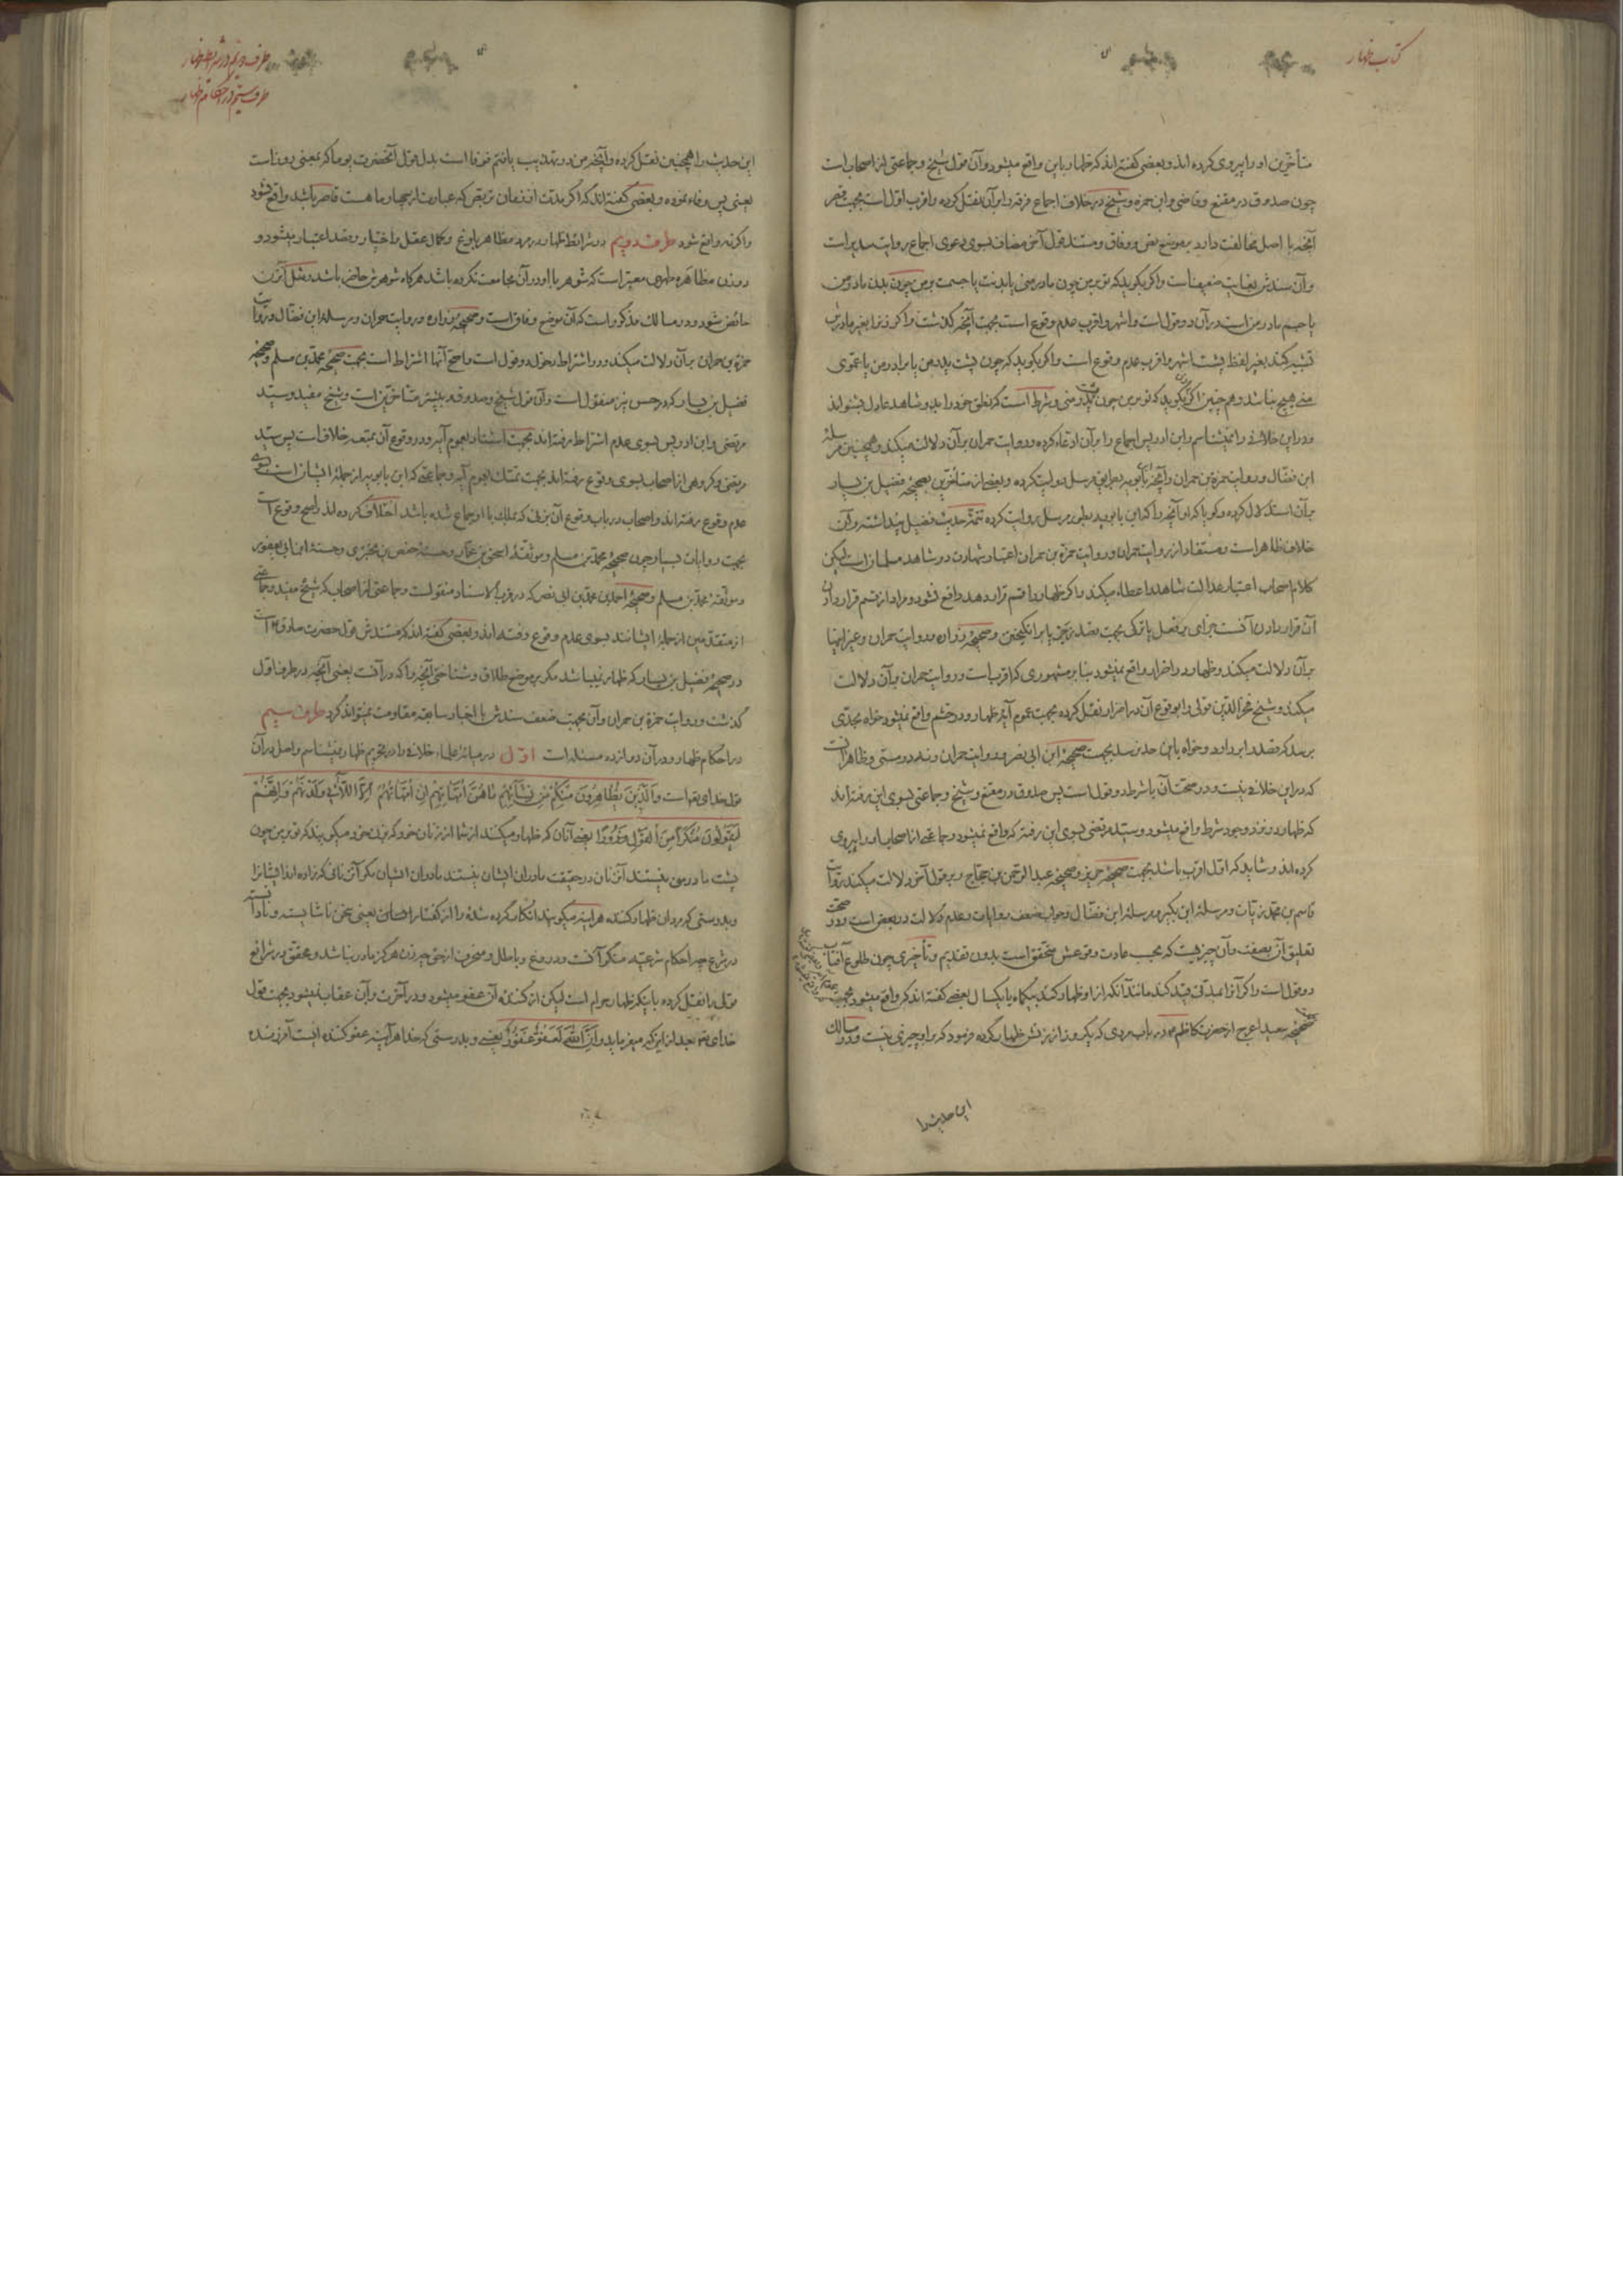 کتاب ظهار
متأخرین او را پیروی کرده اند و بعضی گفته اند که ظهار باین واقع میشود و آن قول شیخ و جماعتی از اصحاب است
چون صدوق در مقنع و قاضی و ابن حمزه و شیخ در خلاف اجماع فرقه را بر آن نقل کرده و اقرب اول است بجهت قصر
آنچه با اصل مخالفت دارد بر موضع نص و وفاق و مستند قول آخر مضاف بسوی دعوی اجماع روایت سدیر است
و آن سندش بغایت ضعیف است و اگر بگوید که تو بر من چون مادر منی یا بدنت یا جسمت بر من چون بدن مادر من
یا جسم مادر من است در آن دو قول است و اشهر و اقرب عدم وقوع است بجهت آنچه گذشت و اگر زن را بغیر مادرش
تشبیه کند بغیر لفظ پشت اشهر و اقرب عدم وقوع است و اگر بگوید که چون پشت پدر من یا برادر من یا عموی
منی هیچ نباشد و هم چنین اگر زن بگوید که تو بر من چون پشت مادر منی و شرط است که نطق خود را بدو شاهد عادل بشنواند
و در این خلافی را نمیشناسم و ابن ادریس اجماع را بر آن ادعاء کرده و روایت حمران بر آن دلالت میکند و همچنین مرسله
ابن فضال و روایت حمزة بن حمران و آنچه ابن بابویه بطریق مرسل روایت کرده و بعضی از متأخرین بصحیحه فضیل بن یسار
بر آن استدلال کرده و گویا که او آنچه را که ابن بابویه بطور مرسل روایت کرده تتمه حدیث فضیل پنداشته و آن
خلاف ظاهر است و مستفاد از روایت حمران و روایت حمزة بن حمران اعتبار شهادت دو شاهد مسلمان است لیکن
کلام اصحاب اعتبار عدالت شاهد را اعطاء میکند و اگر ظهار را قسم قرار دهد واقع نشود و مراد از قسم قرار دادن
آن قرار دادن آنست جزای بر فعل یا ترکی بجهت قصد زجر یا برانگیختن و صحیحه زراره و روایت حمران و غیر اینها
بر آن دلالت میکند و ظهار در اضرار واقع نمیشود بنابر مشهوری که اقرب است و روایت حمران بر آن دلالت
میکند و شیخ فخر الدین قولی را بوقوع آن در اضرار نقل کرده بجهت عموم آیه ظهار و در خشم واقع نمیشود خواه بحدی
برسد که قصد را بردارد و خواه باین حد نرسد بجهت صحیحه ابن ابی نصر و روایت حمران و نه در مستی و ظاهر آنست
که در این خلافی نیست و در صحت آن با شرط دو قول است پس صدوق در مقنع و شیخ و جماعتی بسوی این رفته اند
که ظهار در نزد وجود شرط واقع میشود و سید مرتضی بسوی این رفته که واقع نمیشود و جماعتی از اصحاب او را پیروی
کرده اند و شاید که اول اقرب باشد بجهت صحیحه حریز و صحیحه عبد الرحمن بن حجاج و بر قول آخر دلالت میکند روایت
قاسم بن محمد زیات و مرسله ابن بکیر و مرسله ابن فضال و جواب ضعف روایات و عدم دلالت در بعض است و در صحت
تعلیق آن بصفت و آن چیزیست که بحسب عادت وقوعش متحقق است بدون تقدیم و تأخیری چون طلوع آفتاب
دو قول است و اگر آنرا بمدتی قید کند مانند آنکه از او ظهار کند بیکماه یا یکسال بعضی گفته اند که واقع میشود بجهت
صحیحه سعید اعرج از حضرت کاظم در باب مردی که یکروز از زنش ظهار کرده فرمود که بر او چیزی نیست و در مسالک
این حدیث را
طرف دویم در شرایط ظهار
طرف سیم در احکام ظهار
این حدیث را همچنین نقل کرده و آنچه من در تهذیب یافتم فوفا است بدل قول آنحضرت یوما که بمعنی روز است
یعنی پس وفاء نموده و بعضی گفته اند که اگر مدت از زمان تربص که عبارت از چهار ماهست قاصر باشد واقع نشود
و اگر نه واقع شود طرف دویم در شرائط ظهار در مرد مظاهر بلوغ و کمال عقل و اختیار و قصد اعتبار میشود و
در زن مظاهره طهری معتبر است که شوهر با او در آن مجامعت نکرده باشد هرگاه شوهرش حاضر باشد و مثل آنزن
حائض شود و در مسالک مذکور است که آن موضع وفاق است و صحیحه زراره و روایت حمران و مرسله ابن فضال و روایت
حمزة بن حمران بر آن دلالت میکند و در اشتراط دخول دو قول است واضح آنها اشتراط است بجهت صحیحه محمد بن مسلم و صحیحه
فضیل بن یسار که در حبس نیز منقول است و آن قول شیخ و صدوق و بیشتر متاخرین است و شیخ مفید و سید
مرتضی و ابن ادریس بسوی عدم اشتراط رفته اند بجهت استناد بعموم آیه و در وقوع آن بمتعه خلاف است پس سید
مرتضی و گروهی از اصحاب بسوی وقوع رفته اند بجهت تمسک بعموم آیه و جماعتی که ابن بابویه از جمله ایشان است بسوی
عدم وقوع رفته اند و اصحاب در باب وقوع آن بزنی که بملک با او جماع شده باشد اختلاف کرده اند و اصح وقوع است
بجهت روایات بسیار چون صحیحه محمد بن مسلم و موثقه اسحق بن عمار و حسنه حفص بن بختری و حسنه ابن ابی یعفور
و موثقه محمد بن مسلم و صحیحه احمد بن محمد بن ابی نصر که در قرب الاسناد منقولست و جماعتی از اصحاب که شیخ مفید و جماعتی
از متقدمین از جمله ایشانند بسوی عدم وقوع رفته اند و بعضی گفته اند که مستندش قول حضرت صادق است
در صحیحه فضیل بن یسار که ظهار نمیباشد مگر بر موضع طلاق و شناختی آنچه را که در آنست یعنی آنچه در طرف اول
گذشت و روایت حمزة بن حمران و آن بجهت ضعف سندش با اخبار سابقه مقاومت نمیتواند کرد طرف سیم
در احکام ظهار و در آن دوازده مسئله است اول در میانه علماء خلافی را در تحریم ظهار نمیشناسم و اصل در آن
قول خدای تعو است وَالَّذِينَ يُظَاهِرُونَ مِنْكُمْ مِنْ نِسَائِهِمْ مَا هُنَّ أُمَّهَاتِهِمْ إِنْ أُمَّهَاتُهُمْ إِلَّا اللَّائِي وَلَدْنَهُمْ وَإِنَّهُمْ
لَيَقُولُونَ مُنْكَرًا مِنَ الْقَوْلِ وَزُورًا یعنی آنان که ظهار میکنند از شما از زنان خود که بزن خود میگویند که تو بر من چون
پشت مادر من نیستند آن زنان در حقیقت مادران ایشان نیستند مادران ایشان مگر آن زنانی که زاده اند ایشانرا
و بدرستی که مردان ظهار کننده هر اینه میگویند انکار کرده شده را از گفتار ایشان یعنی سخن ناشایسته و نادانسته
در شرع چه احکام شرعیه منکر آنست و دروغ و باطل و منحرف از حق چه زن هرگز مادر نباشد و محقق در شرائع
قول را نقل کرده باینکه ظهار حرام است لیکن از کننده آن عفو میشود و در آخرت بر آن عقاب نمیشود بجهت قول
خدای تعو بعد از این که میفرماید وَإِنَّ اللَّهَ لَعَفُوٌّ غَفُورٌ یعنی و بدرستی که خدا هر آینه عفو کننده ایست آمرزنده